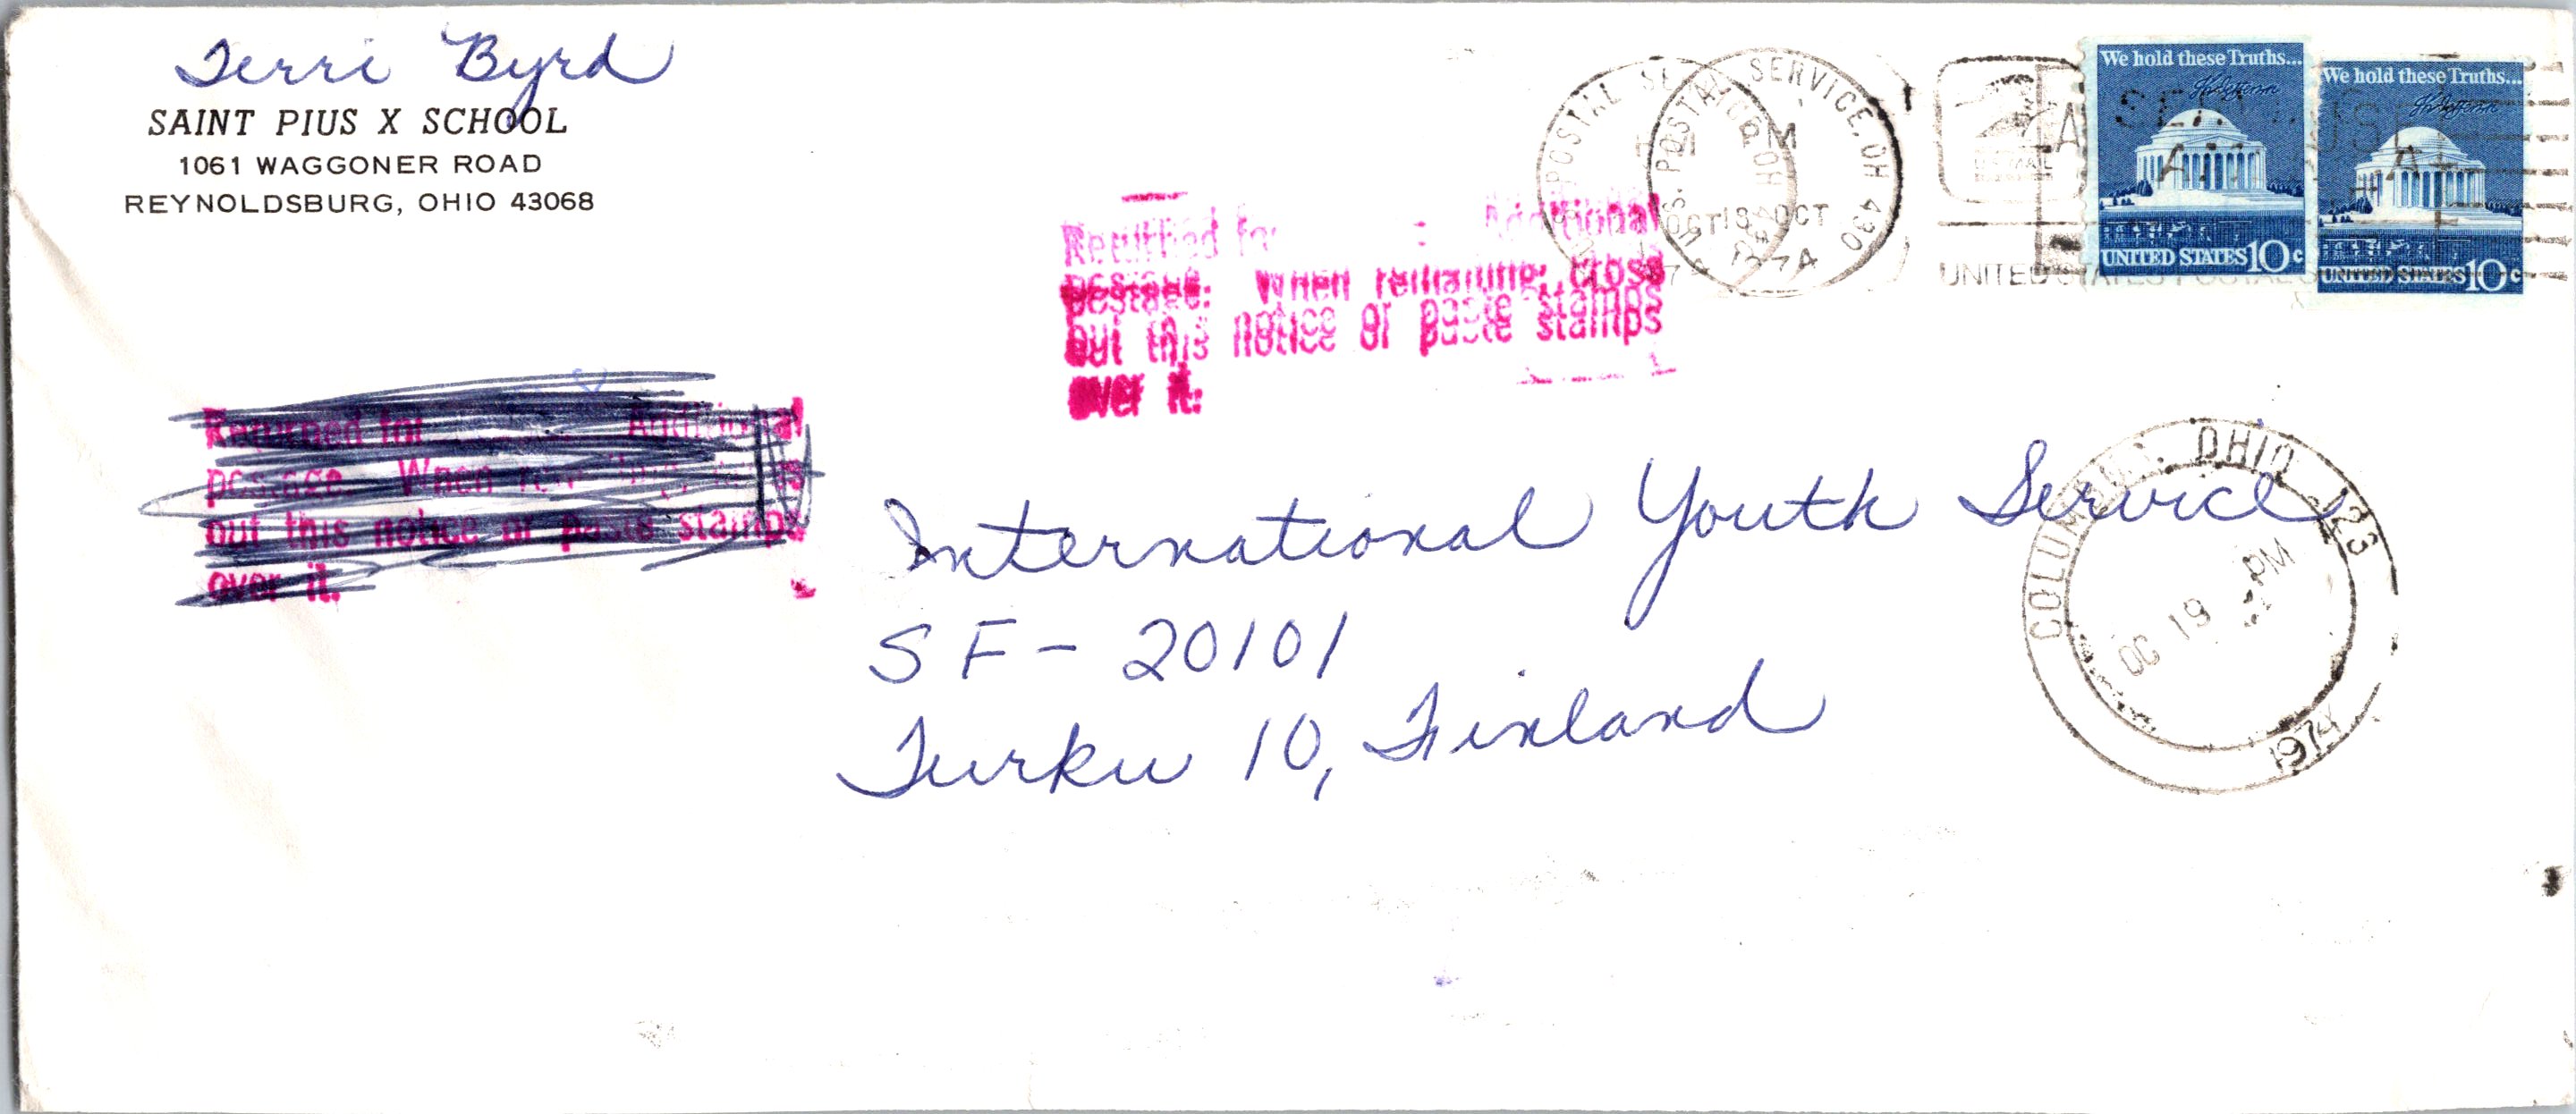 Terri Byrd
SAINT PIUS X SCHOOL
1061 WAGGONER ROAD
REYNOLDSBURG, OHIO 43068
U.S. POSTAL SERVICE, OH 430
PM
18 OCT
1974
U.S. MAIL
UNITED STATES POSTAL
We hold these Truths...
Th Jefferson
UNITED STATES 10c
We hold these Truths...
Th Jefferson
UNITED STATES 10c
Returned for Additional
postage. When remailing, cross
out this notice or paste stamps
over it.
Returned for Additional
postage. When remailing, cross
out this notice or paste stamps
over it.
COLUMBUS, OHIO
PM
OC 19
1974
International Youth Service
SF - 20101
Turku 10, Finland